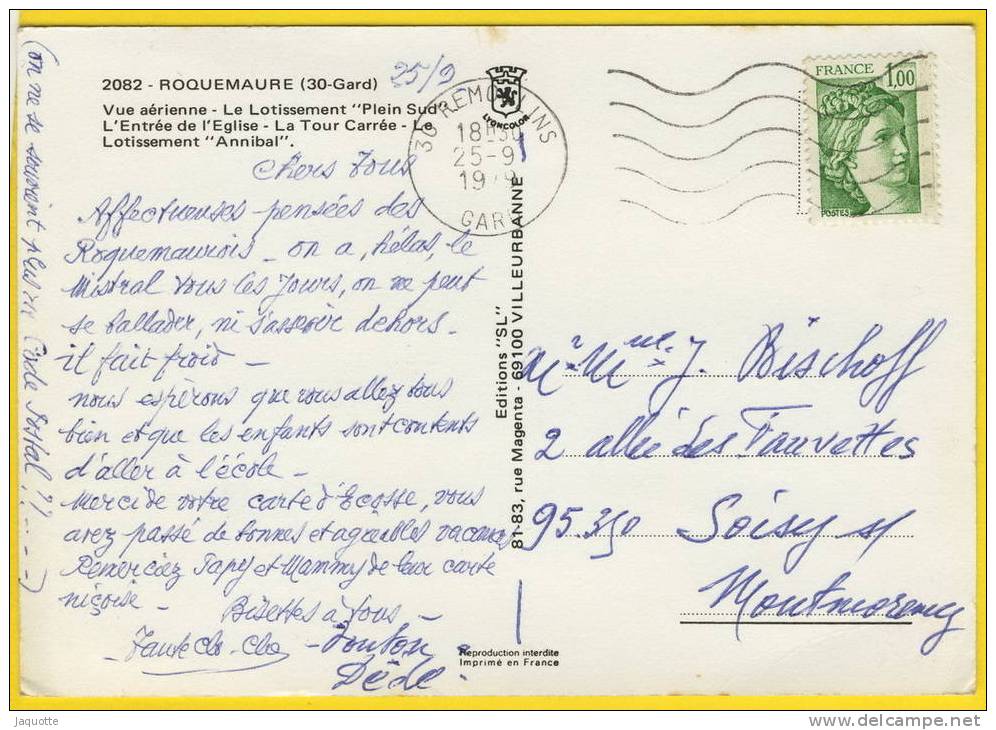 2082 - ROQUEMAURE (30-Gard)
Vue aérienne - Le Lotissement "Plein Sud"
L'Entrée de l'Eglise - La Tour Carrée - Le
Lotissement "Annibal".
25/9
LYONCOLOR
30 REMOULINS
18H30
25-9
GARD
FRANCE 1,00
POSTES
Chers Tous
Affectueuses pensées des
Roquemaurois - on a, hélas, le
Mistral tous les Jours, on ne peut
se ballader, ni s'asseoir dehors -
il fait froid -
nous espèrons que vous allez tous
bien et que les enfants sont contents
d'aller à l'école -
Merci de votre carte d'Ecosse, vous
avez passé de bonnes et agréables vacances
Remerciez Papy et Mammy de leur carte
niçoise -
Bisettes à tous -
Tante Clo-Clo - Tonton
Dédé.
(on ne se souvient plus Code Postal !! - - -)
Editions "SL"
81-83, rue Magenta - 69100 VILLEURBANNE
Mr Mme J. Bischoff
2 allée des Fauvettes
95.350 Soisy s/
Montmorency
Reproduction interdite
Imprimé en France
Jaquotte
www.delcampe.net